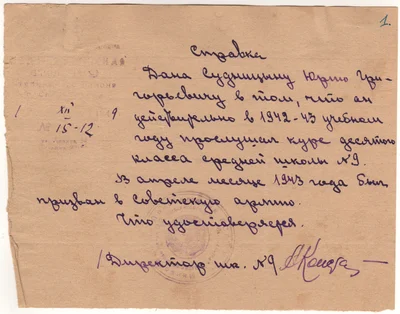 1.
Справка
Дана Судницину Юрию Гри-
горьевичу в том, что он
действительно в 1942-43 учебном
году прослушал курс десятого
класса средней школы №9.
В апреле месяце 1943 года был
призван в Советскую армию.
Что удостоверяется.
Директор шк. №9
1 XII 9
№ 15-12